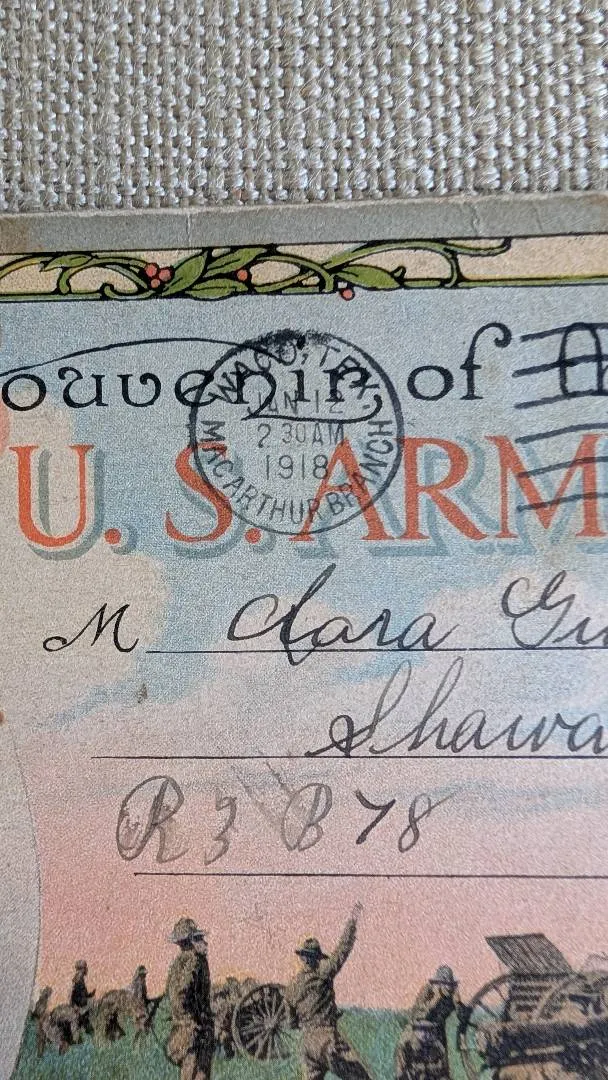 Souvenir of
WACO, TEX.
JAN 12
2 30 AM
1918
MACARTHUR BRANCH
U. S. ARM
M Clara Gu
Shawa
R 3 B 78